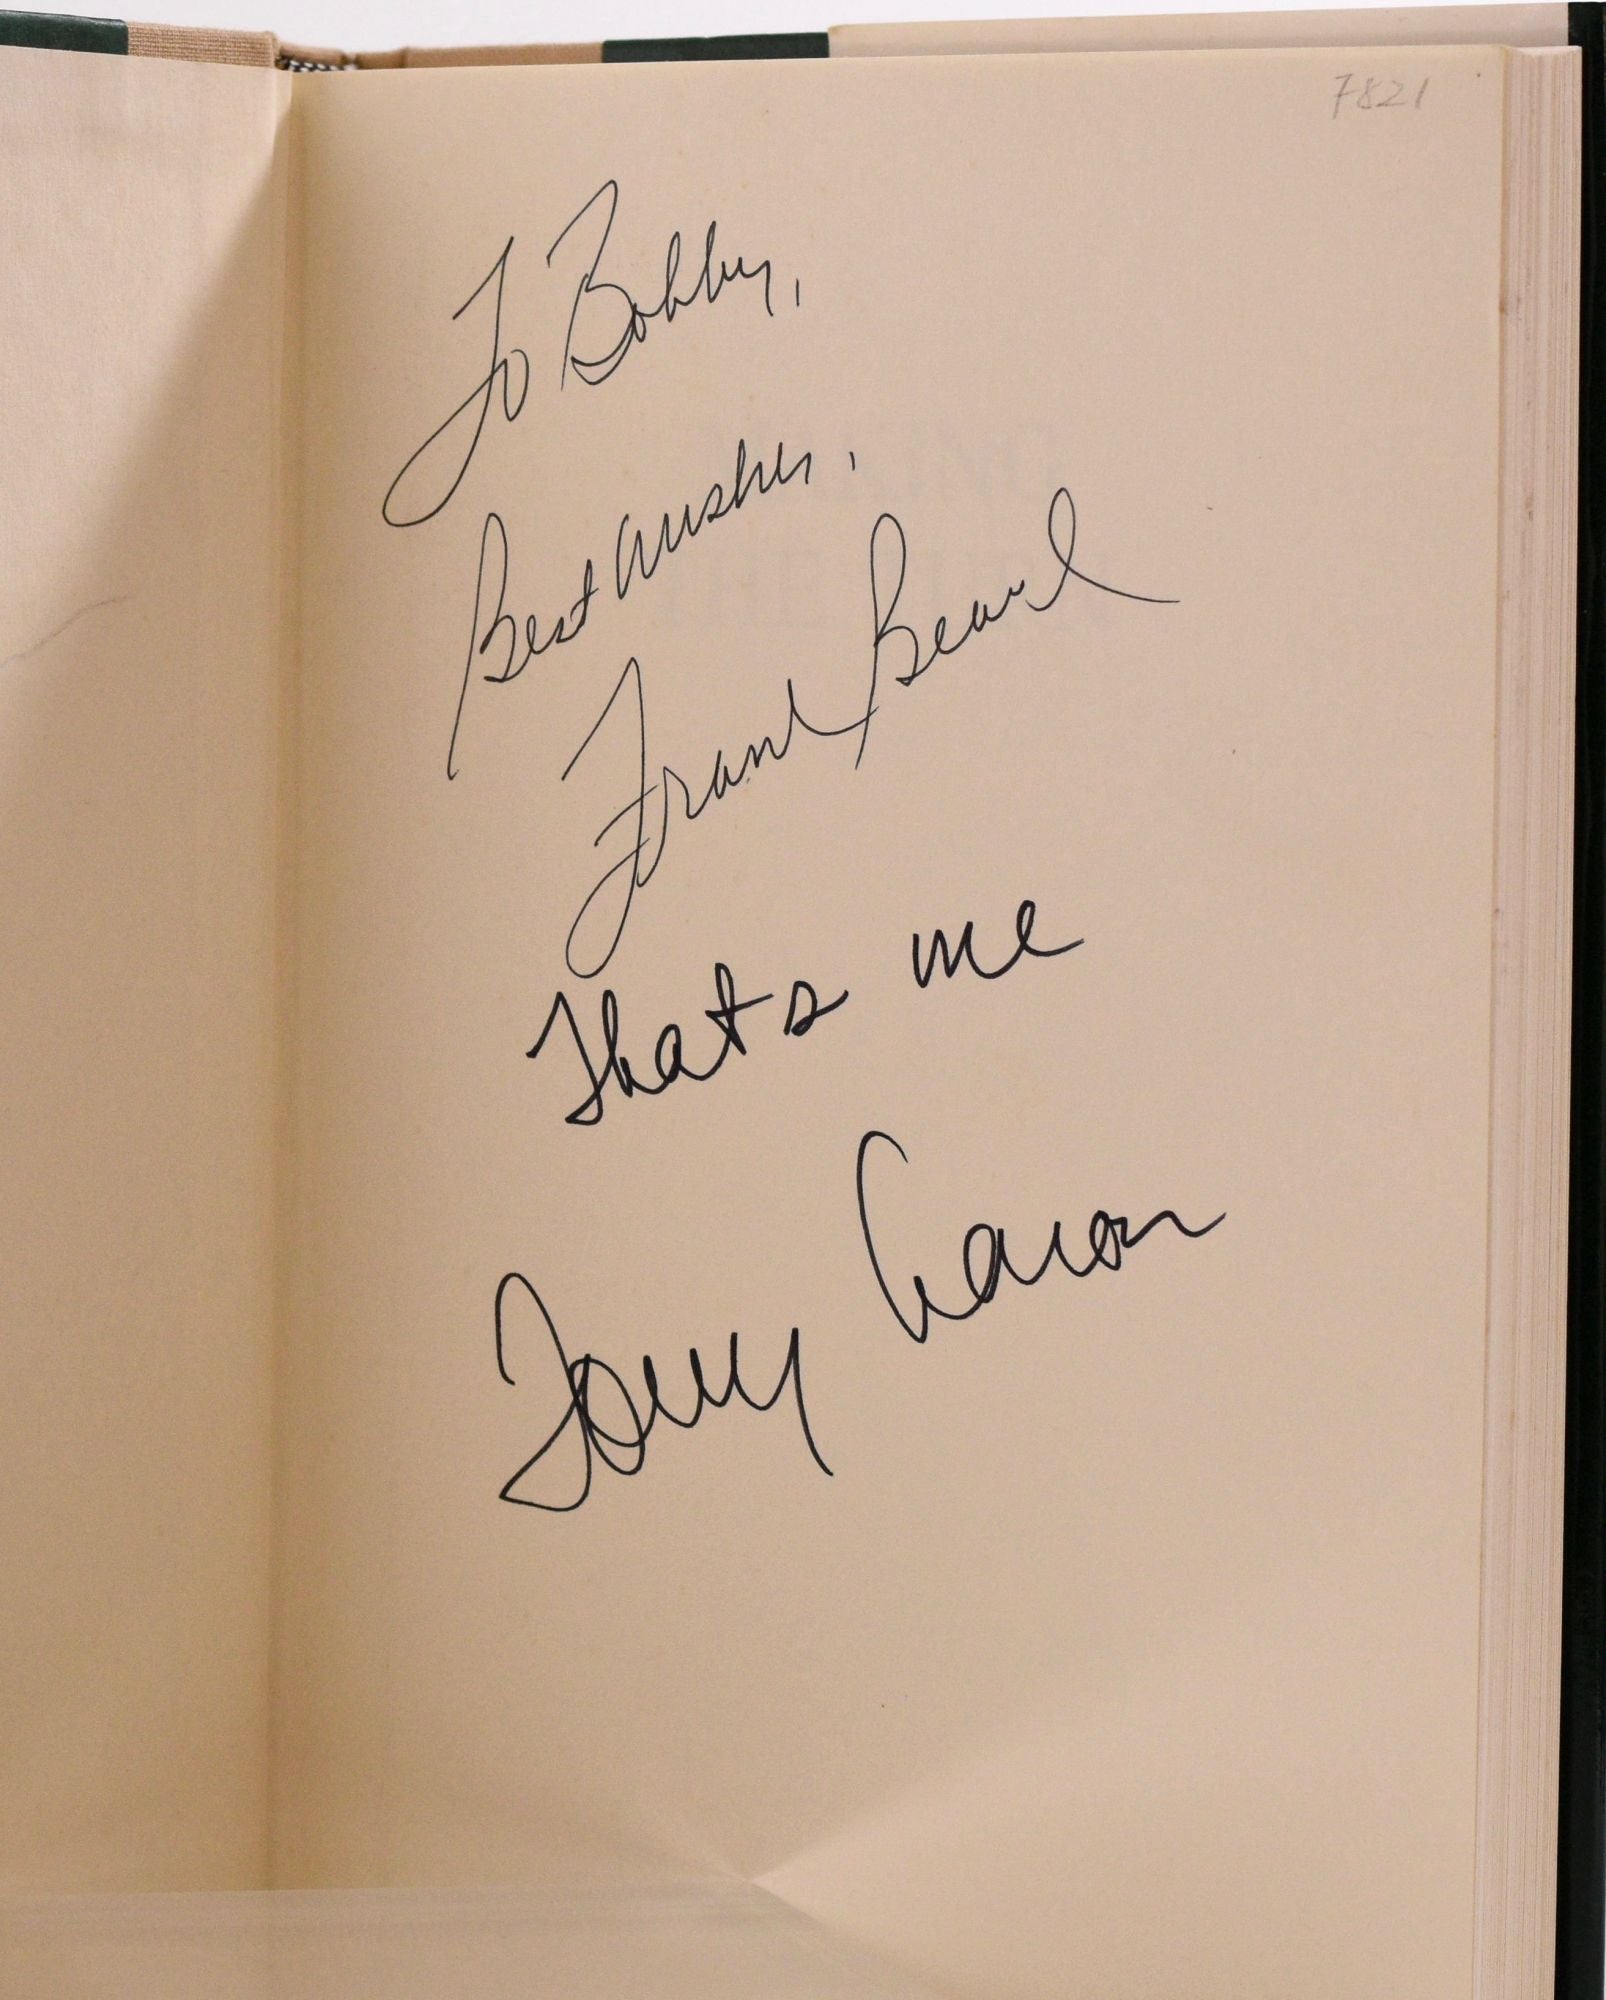 7821
To Bobby,
Best Wishes,
Frank Beard
Thats me
Tommy Aaron